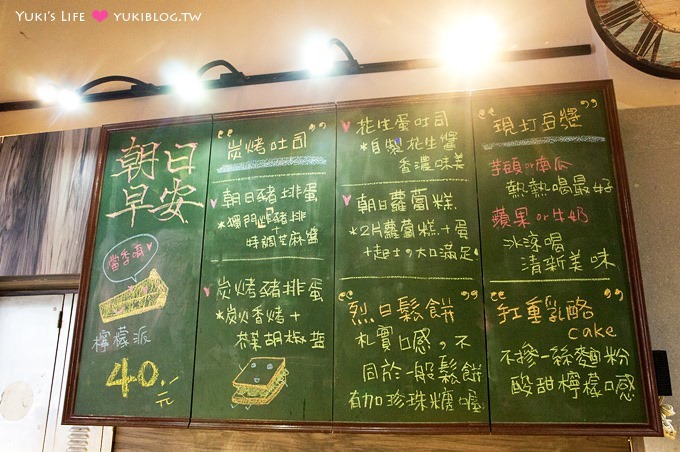 YUKI'S LIFE ♥ YUKIBLOG.TW
朝日
早安
當季ㄟ♥
檸檬派
40.元
"炭烤吐司"
♥朝日豬排蛋
*獨門炸豬排
+
特調芝麻醬
♥炭烤豬排蛋
*炭火香烤+
芥茉胡椒鹽
♥花生蛋吐司
*自製花生醬
香濃味美
♥朝日蘿蔔糕
*2片蘿蔔糕+蛋
+起士,大口滿足
"烈日鬆餅"
札實口感,不
同於一般鬆餅
有加珍珠糖喔
"現打豆漿"
芋頭or南瓜
熱熱喝最好
蘋果or牛奶
冰涼喝
清新美味
"紅重乳酪
cake"
不摻一絲麵粉
酸甜檸檬口感